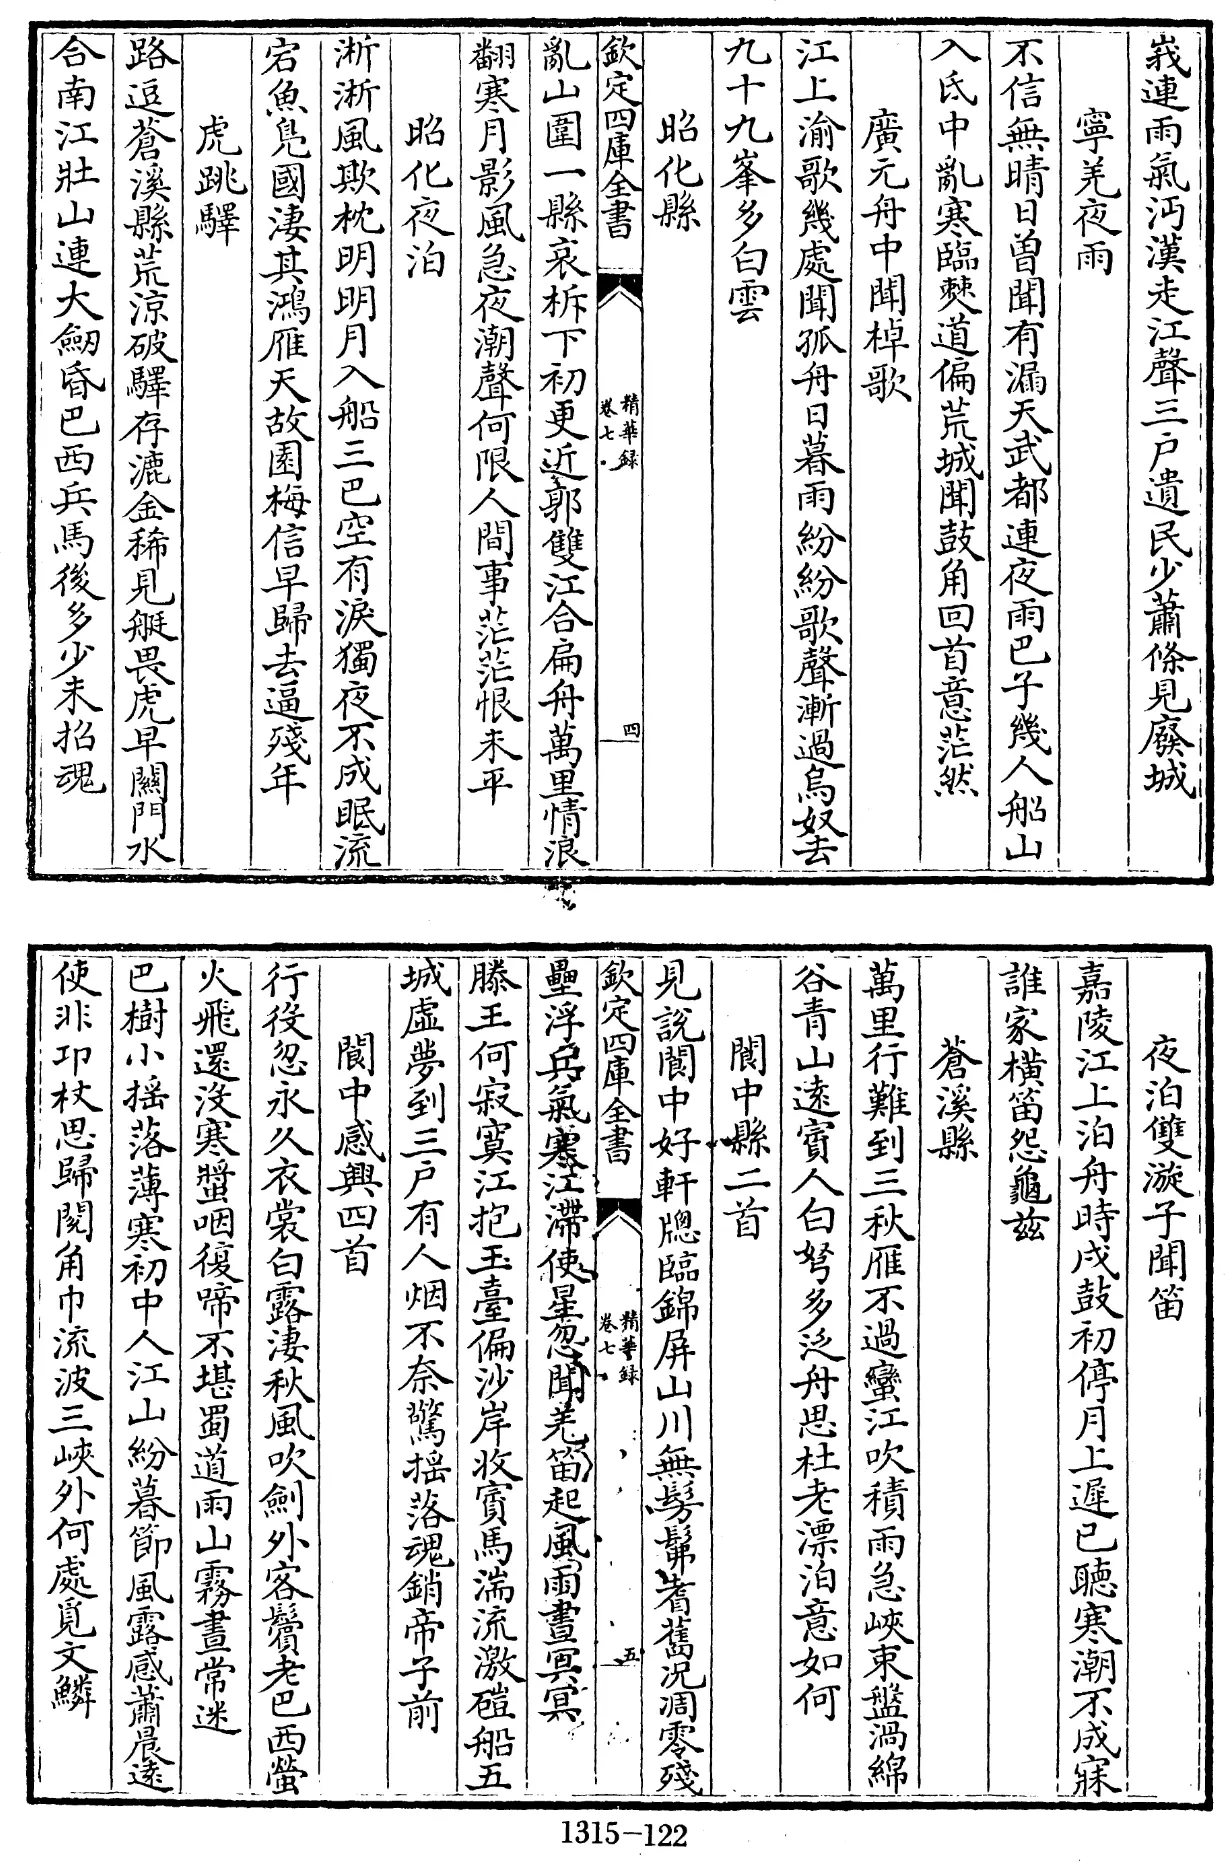 峩連雨氣沔漢走江聲三户遺民少蕭條見廢城
寧羌夜雨
不信無晴日曾聞有漏天武都連夜雨巴子幾人船山
入氐中亂寒臨僰道偏荒城聞鼓角回首意茫然
廣元舟中聞棹歌
江上渝歌幾處聞孤舟日暮雨紛紛歌聲漸過烏奴去
九十九峯多白雲
昭化縣
欽定四庫全書
精華録
卷七
四
亂山圍一縣哀柝下初更近郭雙江合扁舟萬里情浪
翻寒月影風急夜潮聲何限人間事茫茫恨未平
昭化夜泊
淅淅風欺枕明明月入船三巴空有淚獨夜不成眠流
宕魚鳧國淒其鴻雁天故園梅信早歸去逼殘年
虎跳驛
路逗蒼溪縣荒凉破驛存漉金稀見艇畏虎早關門水
合南江壯山連大劒昏巴西兵馬後多少未招魂
夜泊雙漩子聞笛
嘉陵江上泊舟時戍鼓初停月上遲已聽寒潮不成寐
誰家横笛怨龜兹
蒼溪縣
萬里行難到三秋雁不過蠻江吹積雨急峽束盤渦綿
谷青山遠賨人白弩多泛舟思杜老漂泊意如何
閬中縣二首
見說閬中好軒牕臨錦屏山川無髣髴耆舊况凋零殘
欽定四庫全書
精華録
卷七
五
壘浮兵氣寒江滯使星忽聞羌笛起風雨晝冥冥
滕王何寂寞江抱玉臺偏沙岸收賨馬湍流激磑船五
城虚夢到三户有人烟不奈驚摇落魂銷帝子前
閬中感興四首
行役忽永久衣裳白露淒秋風吹劍外客鬢老巴西螢
火飛還没寒螿咽復啼不堪蜀道雨山霧晝常迷
巴樹小摇落薄寒初中人江山紛暮節風露感蕭晨遠
使非卭杖思歸閡角巾流波三峽外何處覓文鱗
1315-122